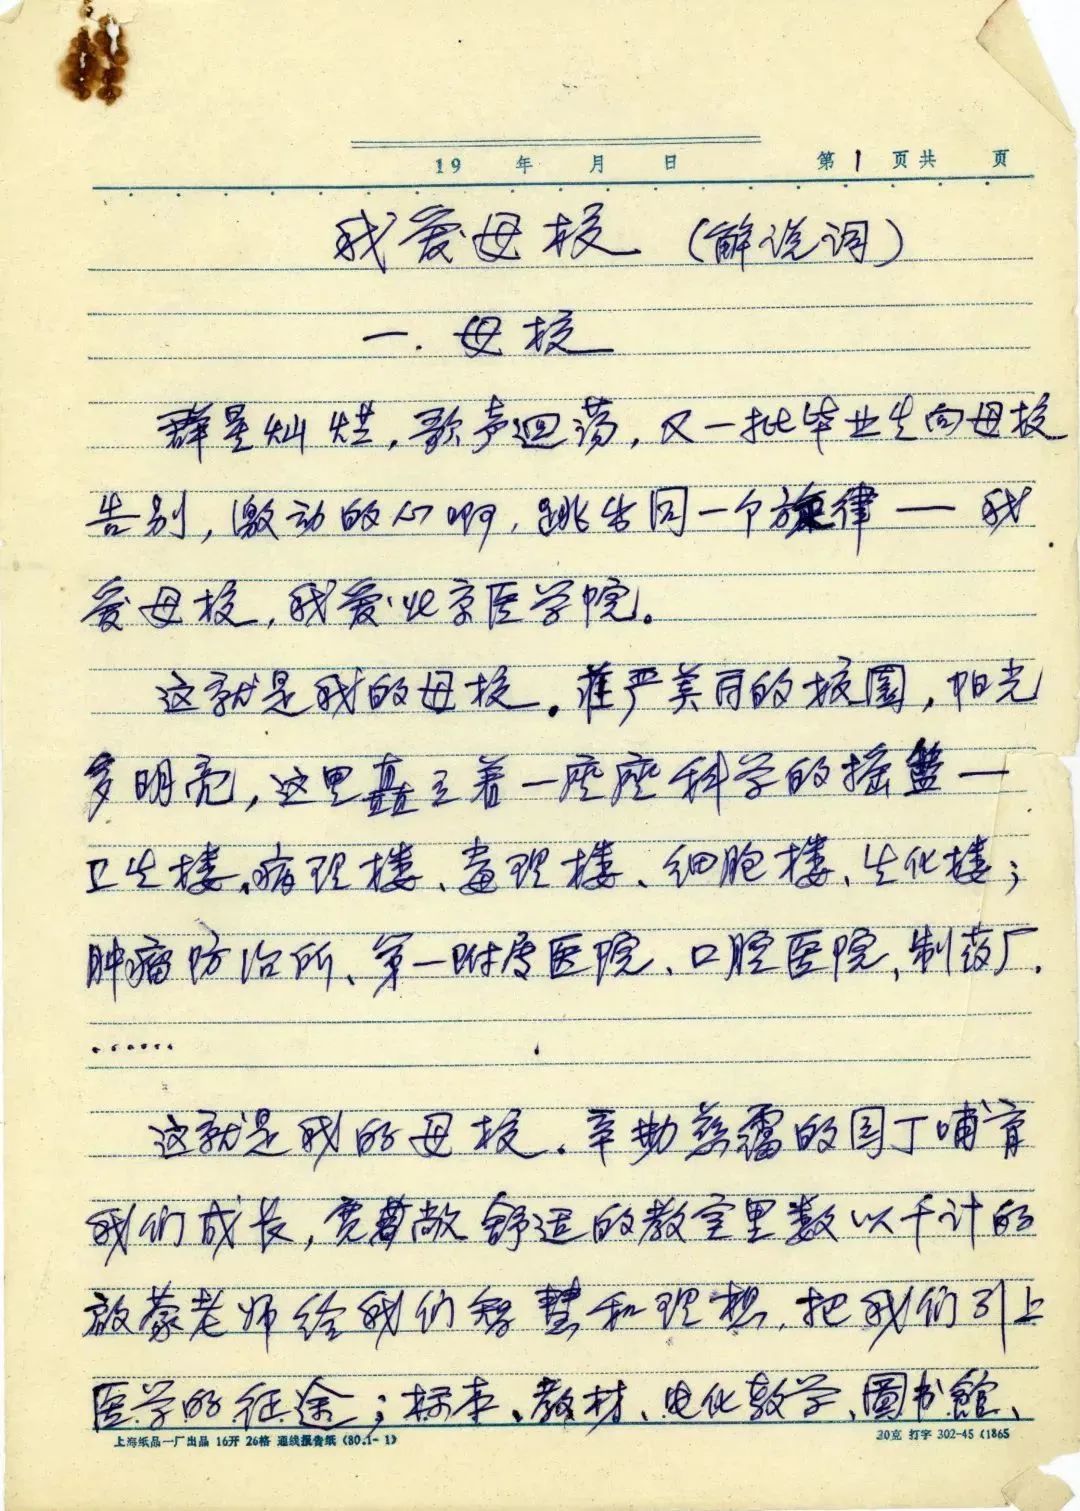 19 年 月 日 第1页共 页
我爱母校（解说词）
一.母校
群星灿烂，歌声迴荡，又一批毕业生向母校
告别，激动的心啊，跳出同一个旋律——我
爱母校，我爱北京医学院。
这就是我的母校。庄严美丽的校园，阳光
多明亮，这里矗立着一座座科学的摇篮—
卫生楼、病理楼、毒理楼、细胞楼、生化楼；
肿瘤防治所、第一附属医院、口腔医院、制药厂.
……
这就是我的母校。辛勤的园丁哺育
我们成长，宽敞舒适的教室里数以千计的
启蒙老师给我们智慧和理想，把我们引上
医学的征途；标本、教材、电化教学、圖书館、
上海纸品一厂出品 16开 26格 通线报告纸 (80.1-1) 30克 打字 302-45 (1865